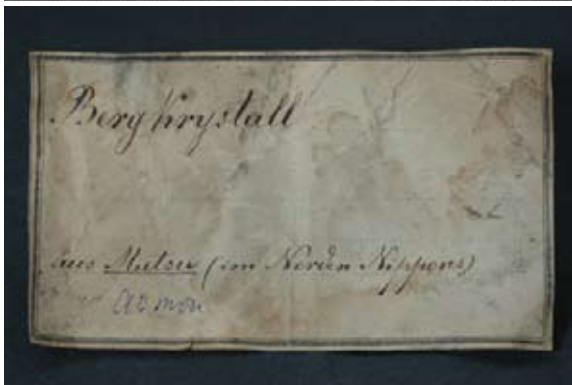 Berg Krystall
aus Mutsu (im Norden Nippons)